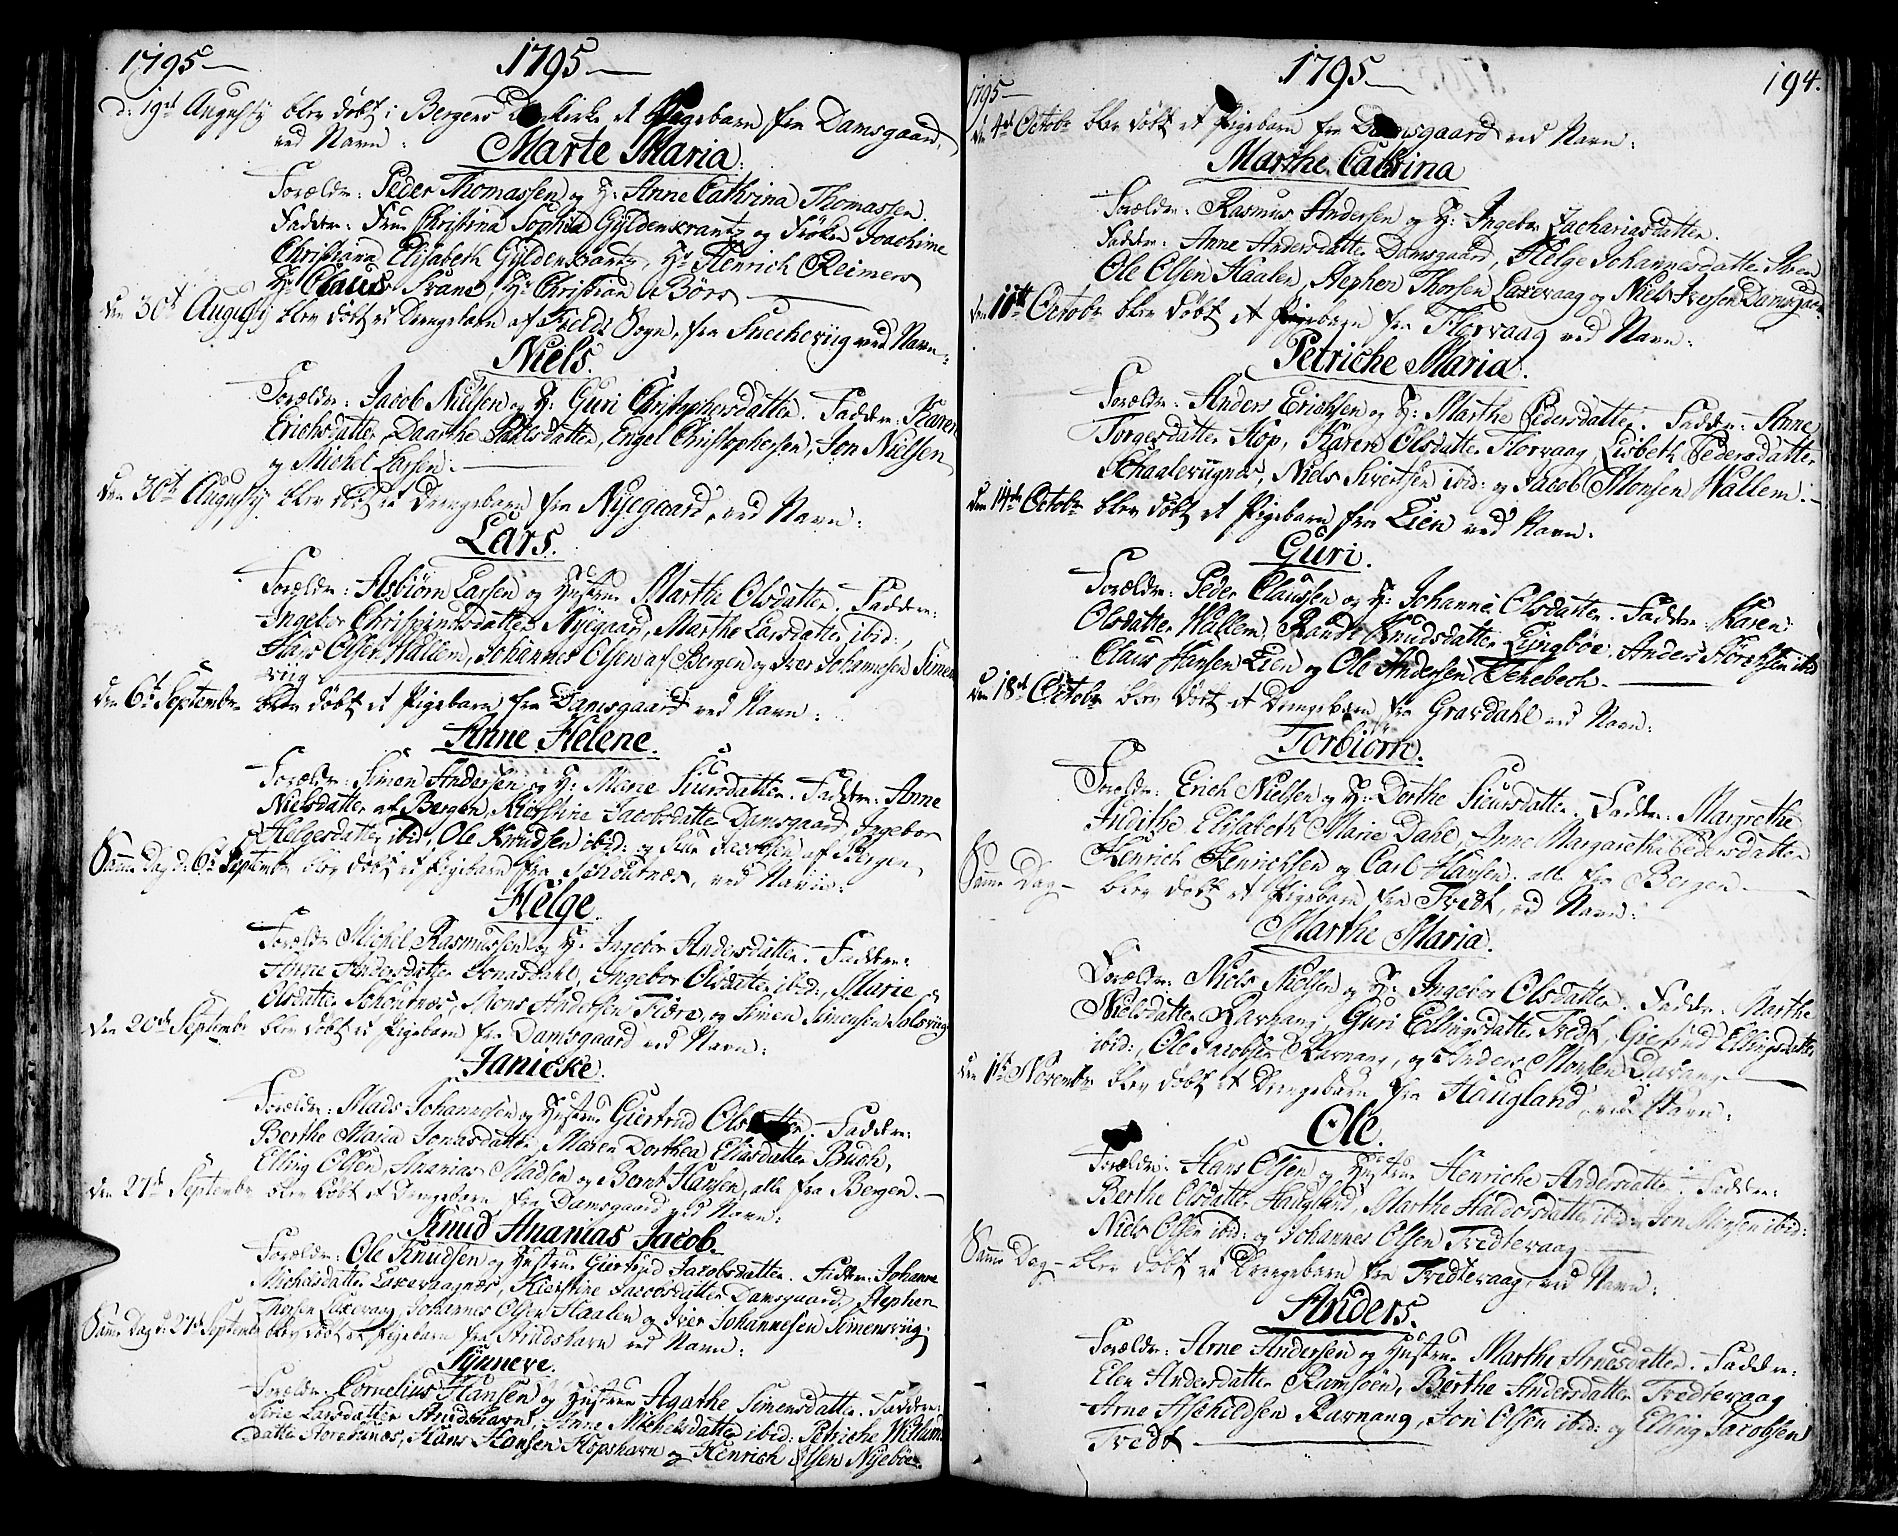 1795
1795
d: 19de Augusty blev døbt i Bergens Domkirke et Pigebarn fra Damsgaard,
ved Navn:
Marte Maria.
Forældre: Peder Thomassen og H: Anne Cathrina Thomassen.
Faddere: Frue Christina Sophia Gyldenkrantz og Frøken Joachime
Christiana Elisabeth Gyldenkrantz, Hr Henrich Reimers
Hr Claus Frane, Hr Christian Børs
den 30te Augusty blev døbt et Drengebarn af Fields Sogn, fra Succheviig ved Navn:
Niels.
Forældre: Jacob Nielsen og H: Guri Christophersdatter. Faddere: Karen
Erichsdatter, Daarthe Nielsdatter, Engel Christophersen, Jon Nielsen
og Michel Larsen.
den 30te Augusty blev døbt et Drengebarn fra Nyegaard, ved Navn:
Lars.
Forældre: Asbiørn Larsen og Hustrue Marthe Olsdatter. Faddere:
Ingebor Christiansdatter Nyegaard, Marthe Larsdatter ibid:
Hans Olsen Wallem, Johannes Olsen af Bergen og Iver Johannesen Simens
viig
den 6te Septembr blev døbt et Pigebarn fra Damsgaard ved Navn:
Anne Helene.
Forældre: Simen Andersen og H: Marie Siursdatter. Faddere: Anne
Nielsdatter af Bergen, Kierstine Jacobsdatter Damsgaard, Ingebor
Helgesdatter ibid, Ole Knudsen ibid: og Siur Jacobsen af Bergen
Samme Dag d: 6te Septembr blev døbt et Pigebarn fra Schoutnæs, ved Navn:
Helge
Forældre Michel Rasmussen og H: Ingebor Andersdatter. Faddere:
Anne Andersdatter Jonasdahl, Ingebor Olsdatter ibid:, Marie
Olsdatter Schoutnæs, Mons Andersen Fiøre, og Simen Simensen Solsviig
den 20de Septembr blev døbt et Pigebarn fra Damsgaard ved Navn:
Janicke.
Forældre: Mads Johannesen og Hustrue Giertrud Olsdatter. Faddere:
Berthe Maria Jonasdatter, Maren Dorthea Eliasdatter Buch,
Elling Olsen, Ananias Madsen og Bernt Hansen, alle fra Bergen.
den 27de Septembr blev døbt et Drengebarn fra Damsgaard ved Navn:
Knud Ananias Jacob
Forældre: Ole Knudsen og Hustrue Giertrud Jacobsdatter. Faddere: Johanne
Michelsdatter Laxevaagnæs, Kierstine Jacobsdatter Damsgaard, Stephen
Thorsen Laxevaag, Johannes Olsen Haalen og Iver Johannesen Simensviig.
Samme Dag d: 27de Septembr blev døbt et Pigebarn fra Strudshavn ved Navn:
Synneve.
Forældre: Cornelius Hansen og Hustrue Agathe Simensdatter. Faddere:
Siri Larsdatter Strudshavn, Anne Michelsdatter ibid: Petriche Willums
datter Storesnæs, Hans Hansen Kopshavn og Henrich Olsen Nyebøe.
1795
194.
1795
den 4de Octobr blev døbt et Pigebarn fra Damsgaard ved Navn:
Marthe Catrina
Forældre: Rasmus Andersen og H: Ingebor Zachariasdatter.
Faddere: Anne Andersdatter Damsgaard, Helge Johannesdatter
Ole Olsen Haalen, Stephen Thorsen Laxevaag og Niels Ivesen Damsgaar
den 11te Octobr blev døbt et Pigebarn fra Florvaag ved Navn:
Petriche Maria.
Forældre: Anders Erichsen og H: Marthe Pedersdatter. Faddere: Anne
Torgesdatter Kop, Karen Olsdatter Florvaag, Lisbeth Pedersdatter
Schaaleviignæs, Niels Sivertsen ibid: og Jacob Monsen Wallem.
den 14de Octobr blev døbt et Pigebarn fra Lien ved Navn:
Guri.
Forældre: Peder Claussen og H: Johanne Olsdatter. Faddere: Karen
Olsdatter Wallem, Randi Knudsdatter Liungbøe, Anders ibid
Claus Hansen Lien og Ole Andersen Vehebech.
den 18de Octobr blev døbt et Drengebarn fra Gravdahl ved Navn:
Torbiørn.
Forældre: Erich Nielsen og H: Dorthe Siursdatter. Faddere: Margrethe
Judithe, Elisabeth Marie Dahl, Anne Margaretha Pedersdatter
Henrich Henrichsen og Carl Hansen: alle fra Bergen.
Samme Dag blev døbt et Pigebarn fra Tvedt, ved Navn:
Marthe Maria.
Forældre: Niels Nielsen og H: Ingebor Olsdatter. Faddere: Marthe
Nielsdatter Ravnang, Guri Ellingsdatter Tvedt, Giertrud Ellingsdatter
ibid:, Ole Jacobsen Ravnang, og Anders Monsen Davang
den 1te Novembr blev døbt et Drengebarn fra Haugland, ved Navn:
Ole.
Forældre: Hans Olsen og Hustrue Henriche Andersdatter. Faddere:
Berthe Olsdatter Haugland, Marthe Haldorsdatter ibid: Jon Monsen ibid:
Niels Olsen ibid: og Johannes Olsen Tvedtevaag
Samme Dag blev døbt et Drengebarn fra Tvedtevaag, ved Navn:
Anders.
Forældre: Arne Andersen og Hustrue Marthe Arnesdatter. Faddere:
Elen Andersdatter Ramsøen, Berthe Andersdatter Tvedtevaag
Arne Aschildsen Ravnang, Jon Olsen ibid: og Elling Jacobsen
Tvedt